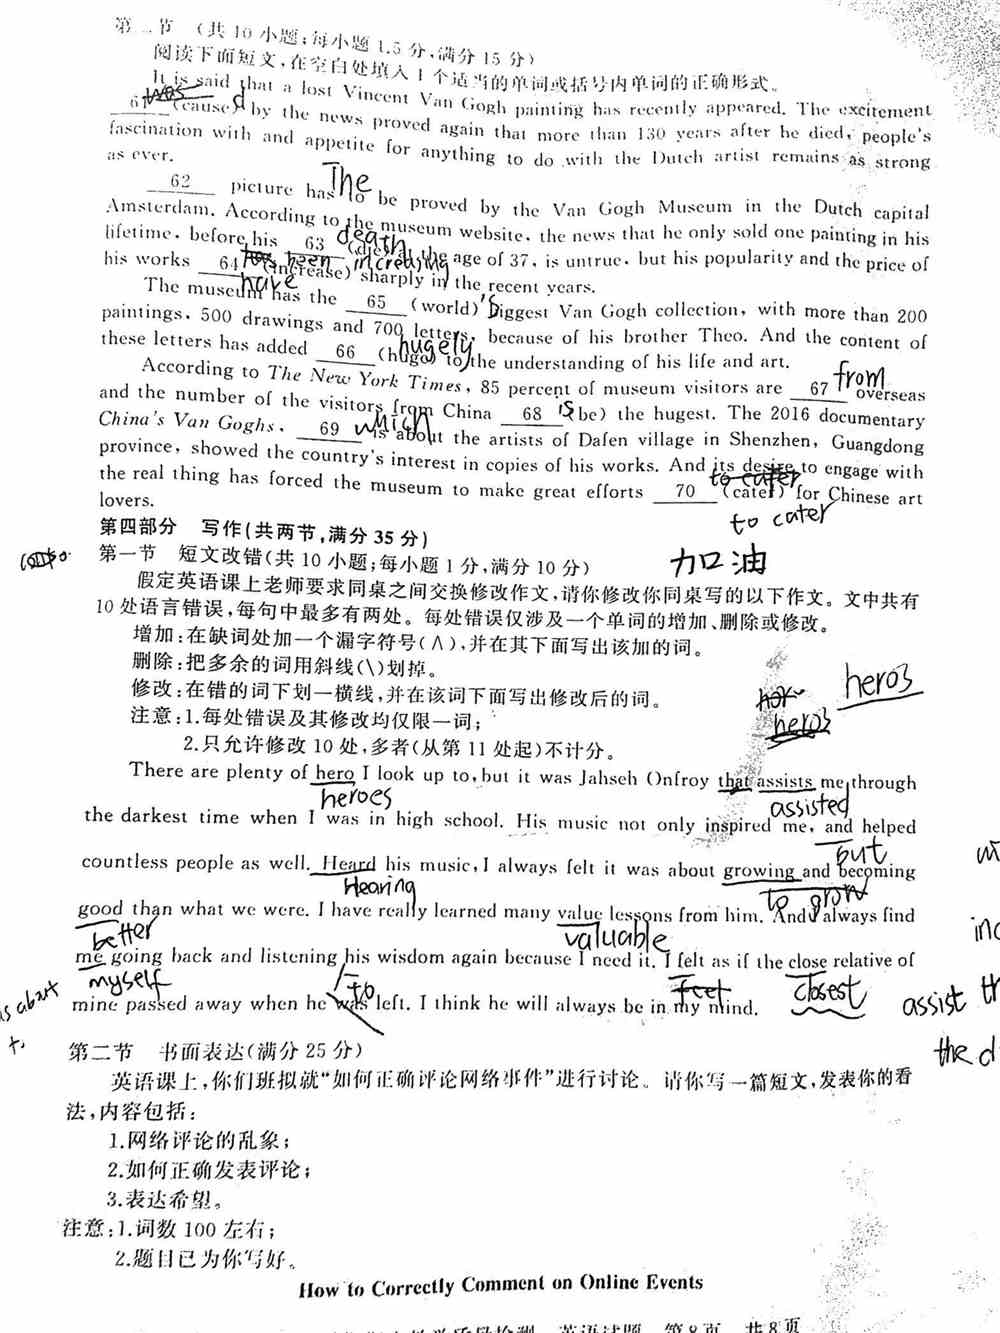 第二节 (共10小题;每小题1.5分,满分15分)
阅读下面短文,在空白处填入1个适当的单词或括号内单词的正确形式。
It is said that a lost Vincent Van Gogh painting has recently appeared. The excitement
was d
61 (cause) by the news proved again that more than 130 years after he died, people's
fascination with and appetite for anything to do with the Dutch artist remains as strong
as ever.
The
62 picture has to be proved by the Van Gogh Museum in the Dutch capital
Amsterdam. According to the museum website, the news that he only sold one painting in his
death
lifetime, before his 63 (die) at the age of 37, is untrue, but his popularity and the price of
has been increasing
his works 64 (increase) sharply in the recent years.
have
The museum has the 65 (world)'s biggest Van Gogh collection, with more than 200
paintings, 500 drawings and 700 letters, because of his brother Theo. And the content of
hugely
these letters has added 66 (huge) to the understanding of his life and art.
from
According to The New York Times, 85 percent of museum visitors are 67 overseas
is
and the number of the visitors from China 68 (be) the hugest. The 2016 documentary
which
China's Van Goghs, 69 is about the artists of Dafen village in Shenzhen, Guangdong
province, showed the country's interest in copies of his works. And its desire to engage with
to cater
the real thing has forced the museum to make great efforts 70 (cater) for Chinese art
to cater
lovers.
第四部分 写作(共两节,满分35分)
第一节 短文改错(共10小题;每小题1分,满分10分)
加口油
假定英语课上老师要求同桌之间交换修改作文,请你修改你同桌写的以下作文。文中共有
10处语言错误,每句中最多有两处。每处错误仅涉及一个单词的增加、删除或修改。
增加:在缺词处加一个漏字符号(∧),并在其下面写出该加的词。
删除:把多余的词用斜线(\)划掉。
修改:在错的词下划一横线,并在该词下面写出修改后的词。
heros
注意:1.每处错误及其修改均仅限一词;
heros
2.只允许修改10处,多者(从第11处起)不计分。
There are plenty of hero I look up to, but it was Jahseh Onfroy that assists me through
heroes assisted
the darkest time when I was in high school. His music not only inspired me, and helped
but
countless people as well. Heard his music, I always felt it was about growing and becoming
Hearing to grow
good than what we were. I have really learned many value lessons from him. And I always find
better valuable
me going back and listening his wisdom again because I need it. I felt as if the close relative of
myself to feet closest
mine passed away when he was left. I think he will always be in my mind.
assist th
the d
第二节 书面表达(满分25分)
英语课上,你们班拟就“如何正确评论网络事件”进行讨论。请你写一篇短文,发表你的看
法,内容包括:
1.网络评论的乱象;
2.如何正确发表评论;
3.表达希望。
注意:1.词数100左右;
2.题目已为你写好。
How to Correctly Comment on Online Events
教学质量检测 英语试题 第8页 共8页